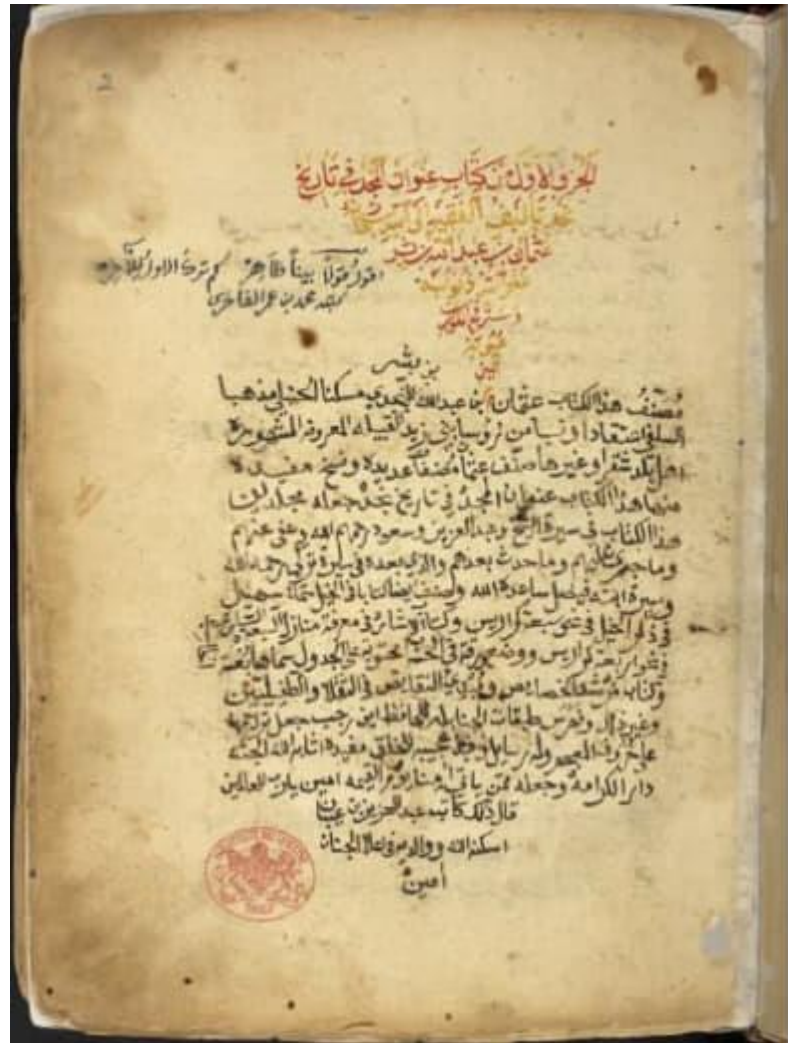 2
الجزو الاول من كتاب عنوان المجد في تاريخ
نجد تاليف الفقير الى
عثمان بن عبد الله بن بشر
غفر الله ذنوبه
وستر في الدارين
عيوبه
امين
اقول قولا بينا ظاهر كم ترك الاول للاخر
كتبه محمد بن عمر الفاخري
بن بشر
مصنف هذا الكتاب عثمان ابن عبد الله النجدي مسكنا الحنبلي مذهبا
السلفي اعتقادا ونسبا من بني زيد القبيله المعروفة المشهورة
اهل بلد شقرا وغيرها صنف مصنفا عديدة ونسخ مفيدة
منها هذا الكتاب عنوان المجد في تاريخ نجد جعله مجلدين
هذا الكتاب في سيرة الشيخ وعبد العزيز وسعود رحمهم الله وعفى عنهم
وما جرى عليهم وما حدث بعدهم والذي بعده في سيرة تركي رحمه الله
وسيرة ابنه فيصل ساعده الله وصنف ايضا كتابا في الخيل سماه سهيل
في ذكر الخيل في نحو سبعة كراريس وكتاب الاشارة في معرفة منازل السبعة
في نحو اربعة كراريس
وكتاب مرشد الخصائص ومبدي النقائص في الثقلا والطفيليين
وغير ذلك وفهرس طبقات الحنابله للحافظ ابن رجب جعل تراجمها
على حروف المعجم وله رسايل مفيدة اثابه الله الجنه
دار الكرامة وجعله ممن ياتي امنا يوم القيمه امين يارب العالمين
قال ذلك كاتبه عبد العزيز بن
اسكنه الله ووالديه في اعلا الجنان
امين